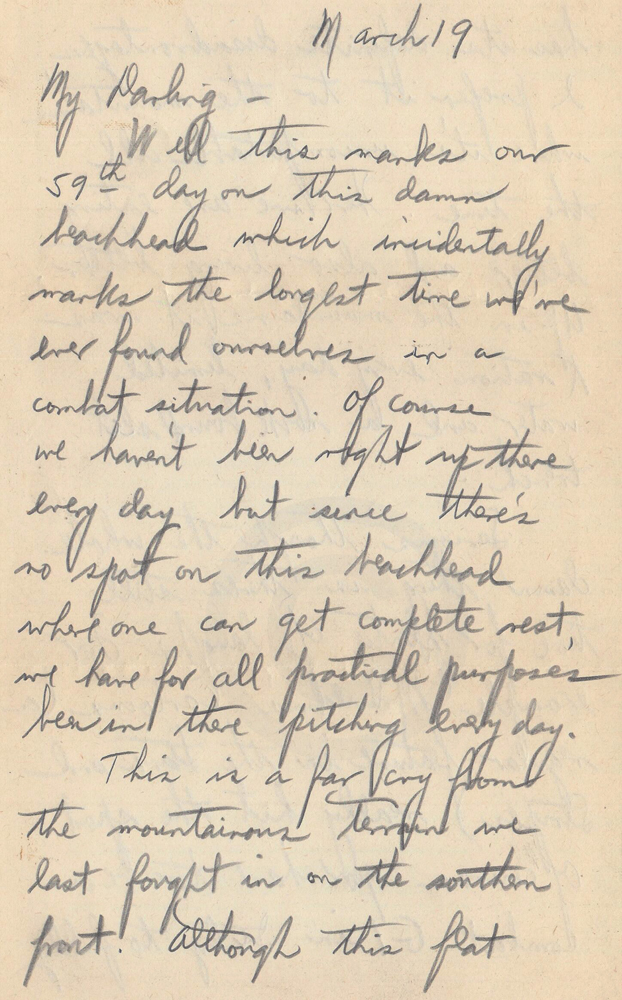 March 19
My Darling -
Well this marks our
59th day on this damn
beachhead which incidentally
marks the longest time we've
ever found ourselves in a
combat situation. Of course
we haven't been right up there
every day but since there's
no spot on this beachhead
where one can get complete rest,
we have for all practical purposes
been in there pitching every day.
This is a far cry from
the mountainous terrain we
last fought in on the southern
front. Although this flat